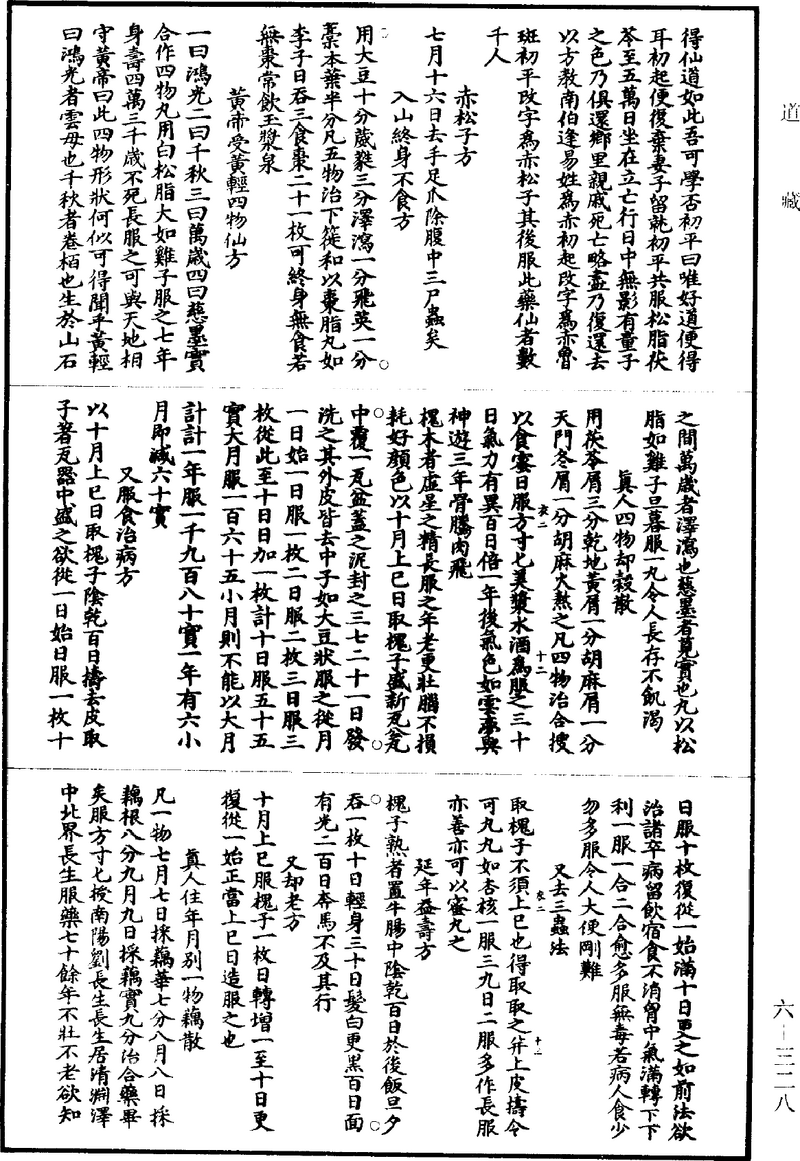 道藏
得仙道如此吾可學否初平曰唯好道便得
耳初起便復棄妻子留就初平共服松脂茯
苓至五萬日坐在立亡行日中無影有童子
之色乃俱還鄉里親戚死亡略盡乃復還去
以方教南伯逢易姓爲赤初起改字爲赤魯
班初平改字爲赤松子其後服此藥仙者數
千人
赤松子方
七月十六日去手足爪除腹中三尸蟲矣
入山終身不食方
用大豆十分葳蕤三分澤瀉一分飛英一分
藁本葉半分凡五物治下簁和以棗脂丸如
李子日吞三食棗二十一枚可終身無食若
無棗常飲玉漿泉
黃帝受黃輕四物仙方
一曰鴻光二曰千秋三曰萬歲四曰慈墨實
合作四物丸用白松脂大如雞子服之七年
身壽四萬三千歲不死長服之可與天地相
守黃帝曰此四物形狀何似可得聞乎黃輕
曰鴻光者雲母也千秋者卷栢也生於山石
之間萬歲者澤瀉也慈墨者莧實也丸以松
脂如雞子旦暮服一丸令人長存不飢渴
眞人四物却穀散
用茯苓屑三分乾地黃屑一分胡麻屑一分
天門冬屑一分胡麻火熬之凡四物治合搜
以食蜜日服方寸匕美漿水酒爲服之三十
日氣力有異百日倍一年後氣色如雲夢與
神遊三年骨騰肉飛
槐木者虛星之精長服之年老更壯腦不損
耗好顏色以十月上巳日取槐子盛新瓦瓮
中覆一瓦盆蓋之泥封之三七二十一日發
洗之其外皮皆去中子如大豆狀服之從月
一日始一日服一枚二日服二枚三日服三
枚從此至十日日加一枚計十日服五十五
實大月服一百六十五小月則不能以大月
計計一年服一千九百八十實一年有六小
月即減六十實
又服食治病方
以十月上巳日取槐子陰乾百日擣去皮取
子著瓦器中盛之欲從一日始日服一枚十
日服十枚復從一始滿十日更之如前法欲
治諸卒病留飲宿食不消胷中氣滿轉下下
利一服一合二合愈多服無毒若病人食少
勿多服令人大便剛難
又去三蟲法
取槐子不須上巳也得取取之并上皮擣令
可丸丸如杏核一服三丸日二服多作長服
亦善亦可以蜜丸之
延年益壽方
槐子熟者置牛腸中陰乾百日於後飯旦夕
吞一枚十日輕身三十日髮白更黑百日面
有光二百日奔馬不及其行
又却老方
十月上巳服槐子一枚日轉增一至十日更
復從一始正當上巳日造服之也
眞人住年月别一物藕散
凡一物七月七日採藕華七分八月八日採
藕根八分九月九日採藕實九分治合藥畢
矣服方寸匕授南陽劉長生長生居清淵澤
中北界長生服藥七十餘年不壯不老欲知
六—三二八